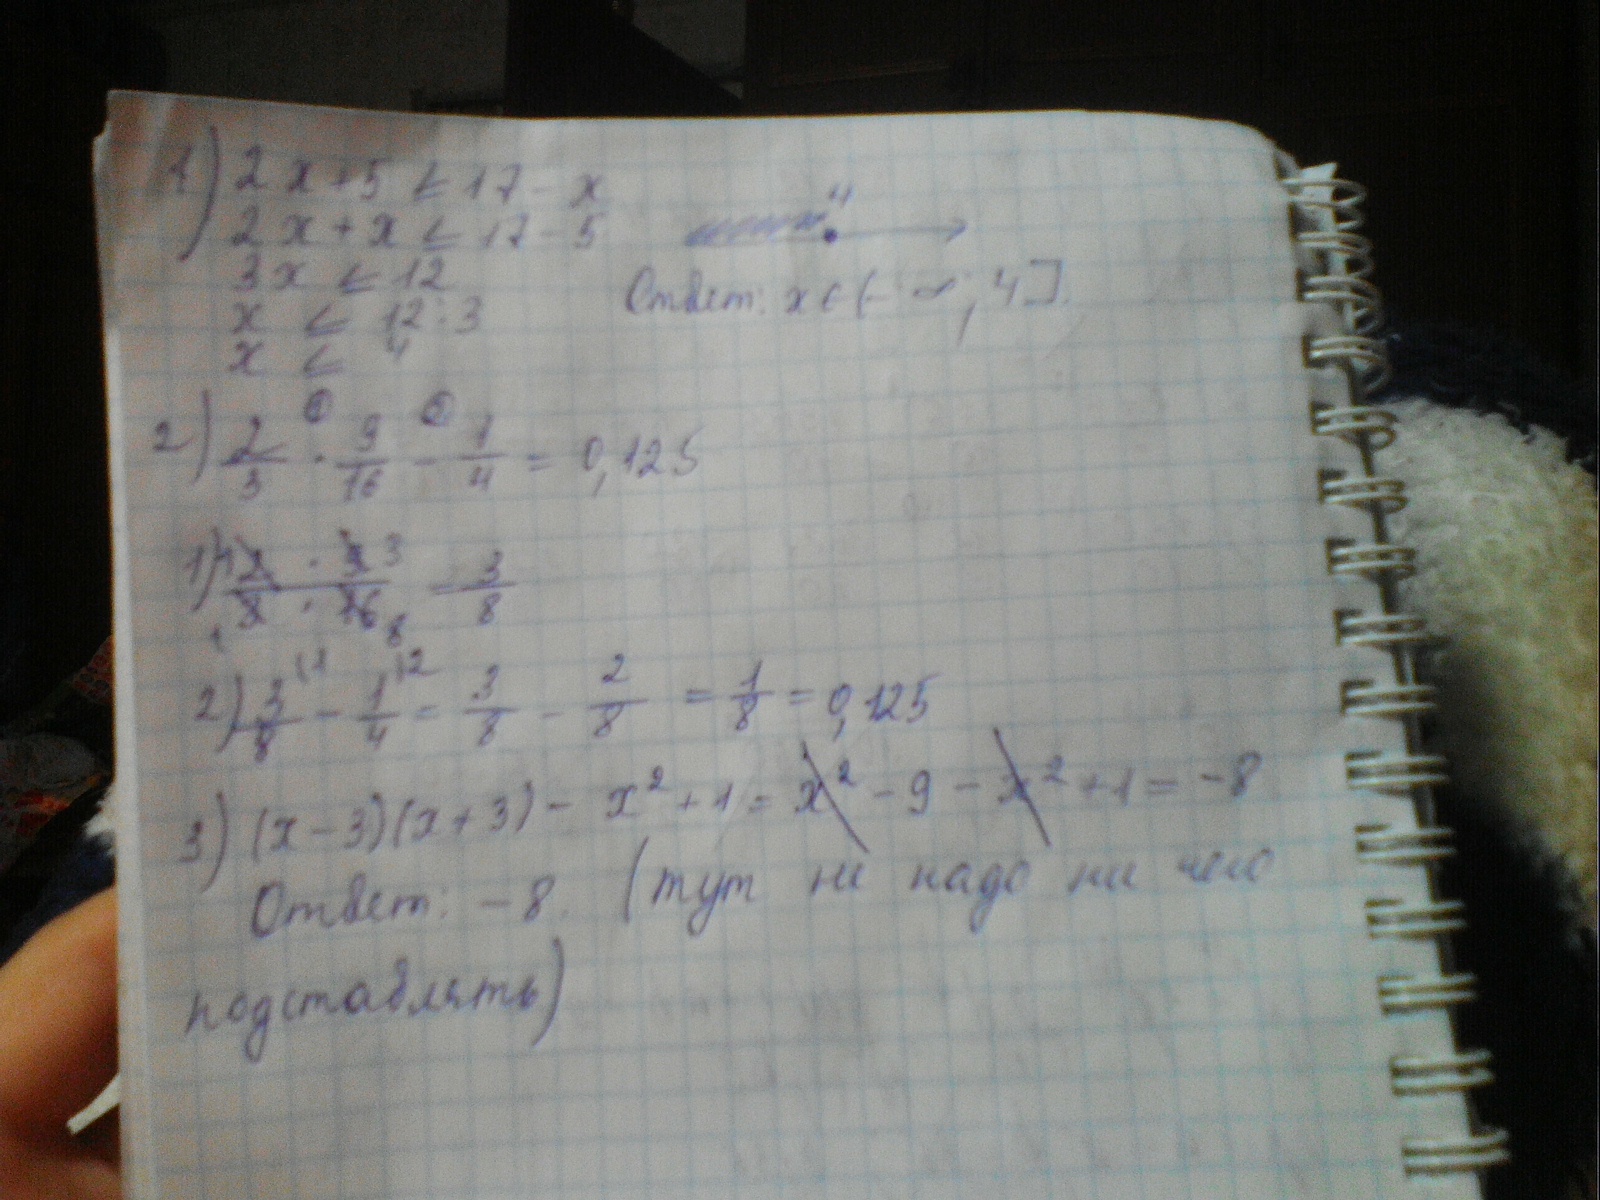 1) 2x+5 ≤ 17 - x
2x + x ≤ 17 - 5
3x ≤ 12
x ≤ 12:3
x ≤ 4
4
Ответ: x ∈ (- ∞; 4].
① ②
2) 2/3 · 9/16 - 1/4 = 0,125
1) 2 · 9 / 3 · 16 = 3/8
2) 3/8 - 1/4 = 3/8 - 2/8 = 1/8 = 0,125
3) (x-3)(x+3) - x² + 1 = x² - 9 - x² + 1 = -8
Ответ: -8. (тут не надо ни чего
подставлять)